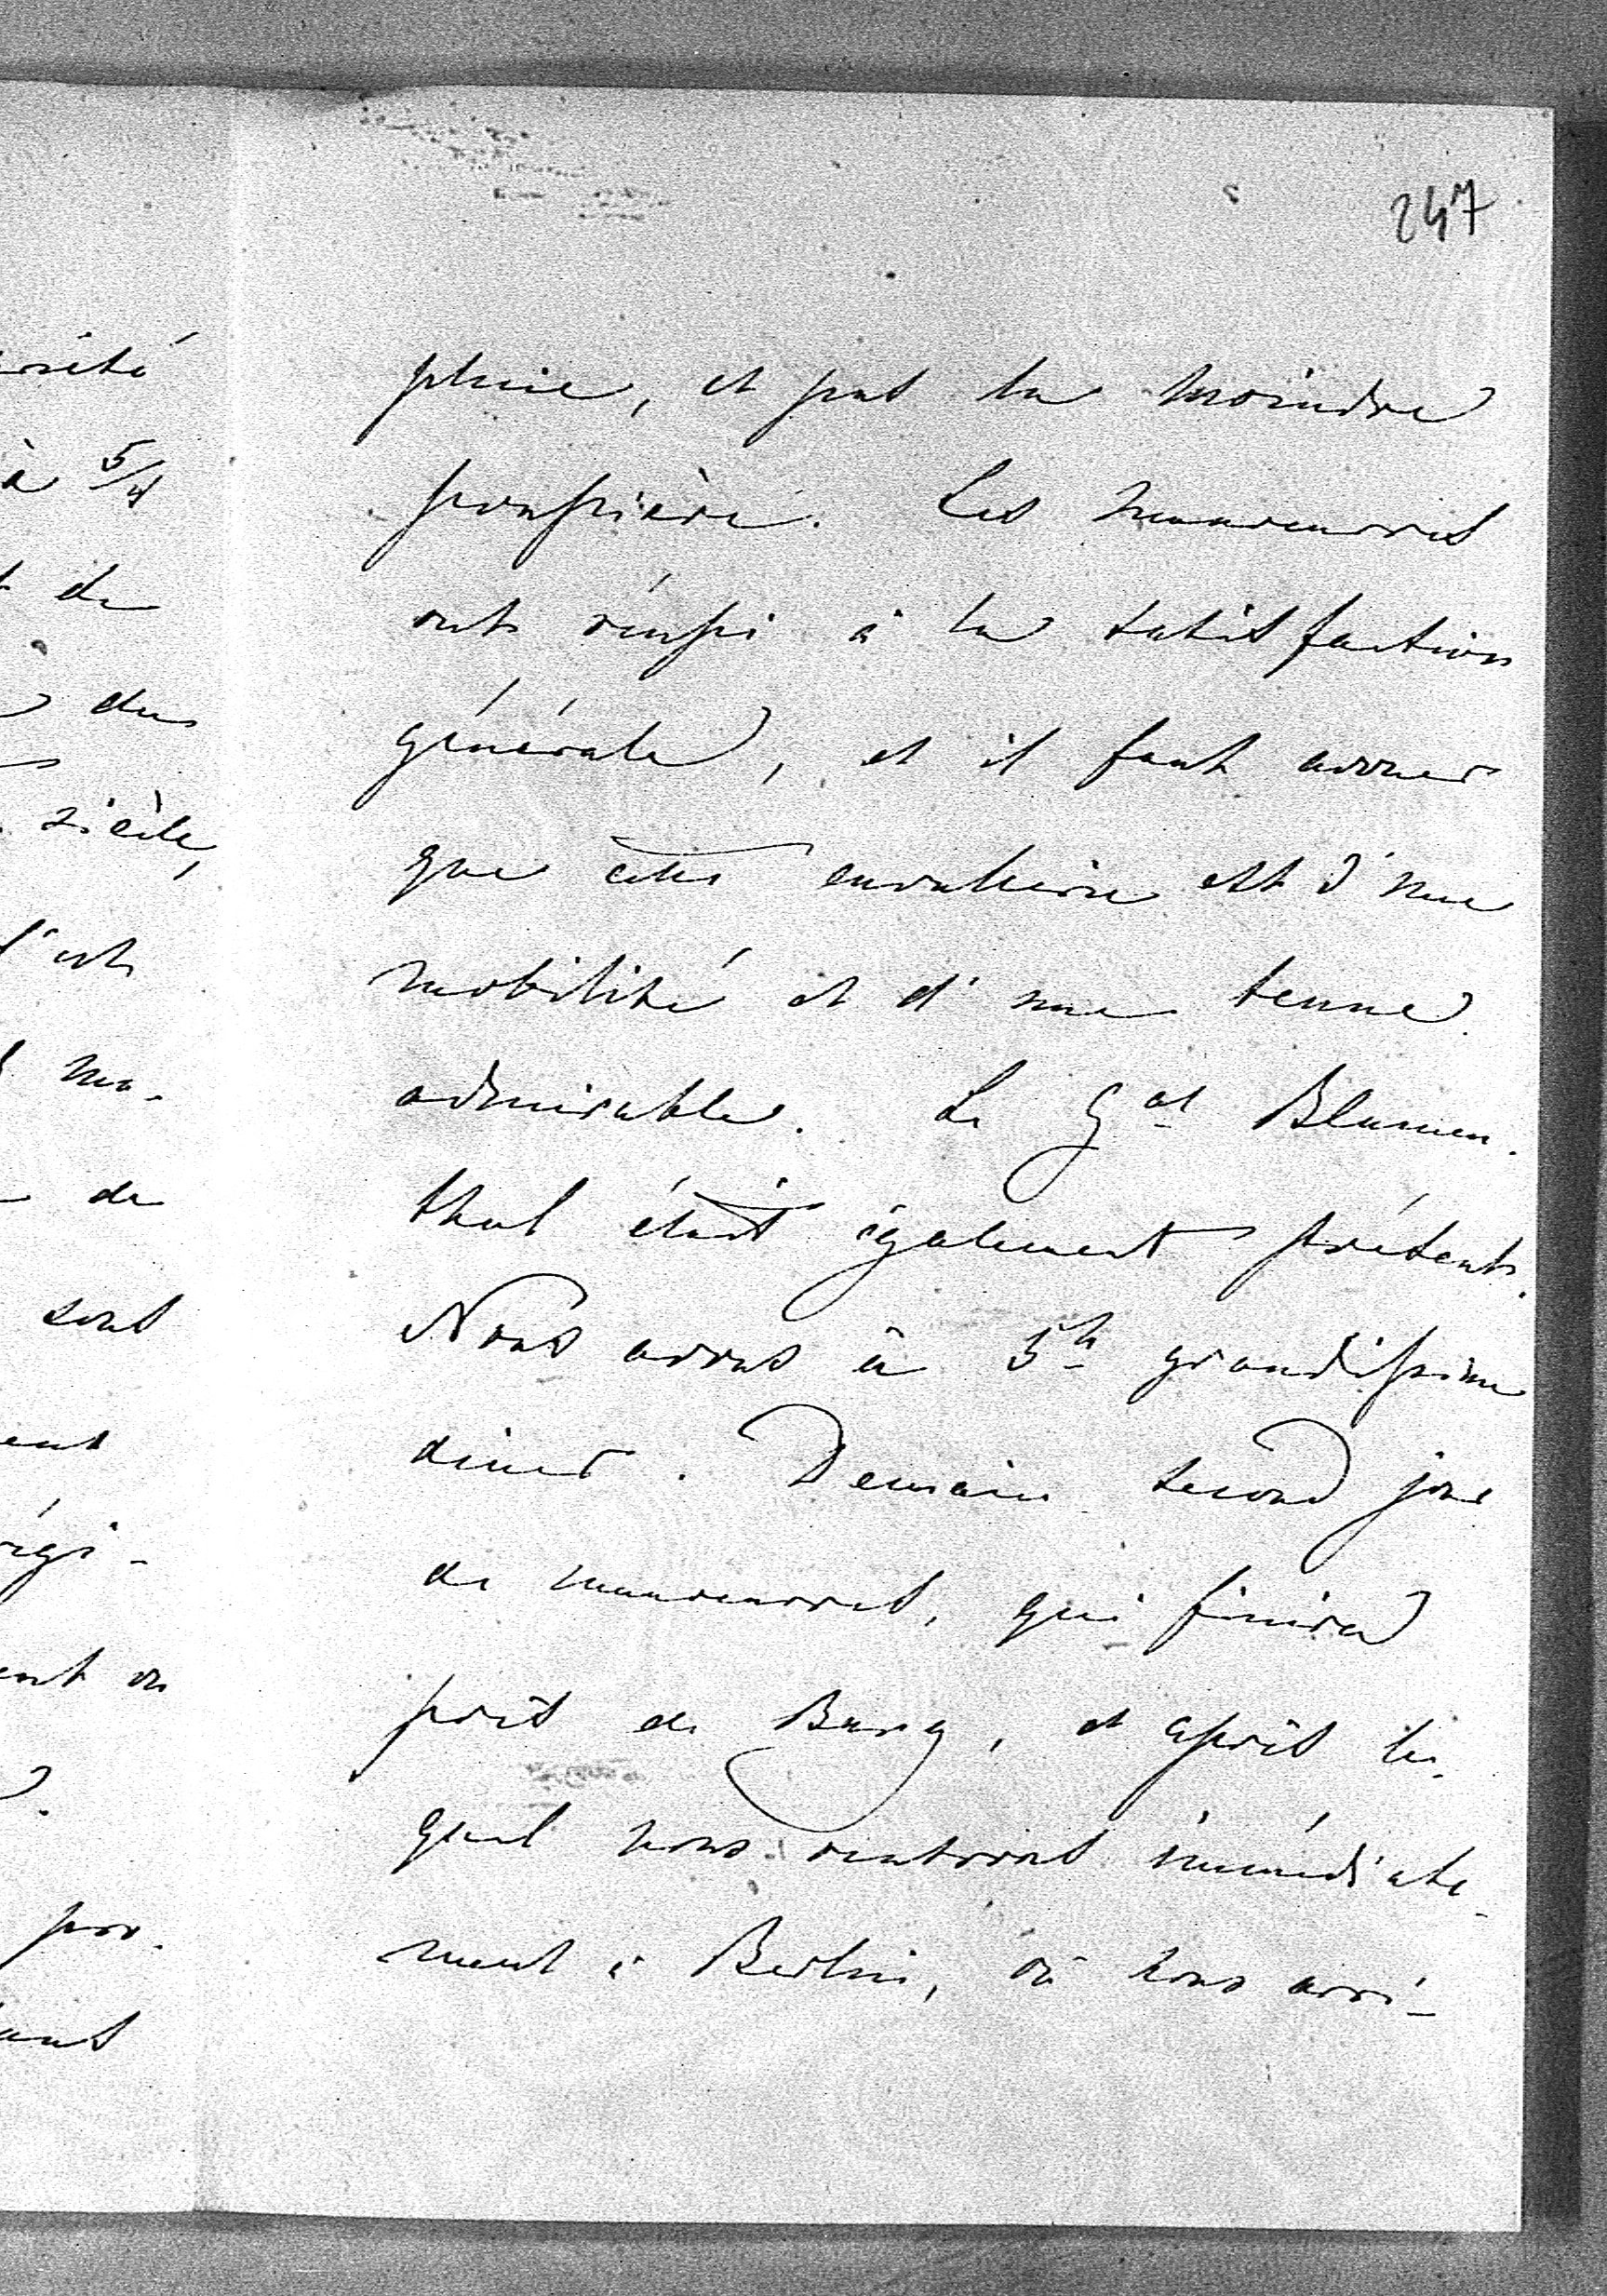 247
pluie, et pas la moindre
poussière. Les manœuvres
ont réussi à la satisfaction
générale, et il faut avouer
que cette cavallerie est d'une
mobilité et d'une tenue
admirable. Le Gal Blumen-
thal était également présent.
Nous avons à 5h grandissime
diner. Demain second jour
de manœuvres, qui finira
près de Burg, et après le-
quel nous rentrons immédiate-
ment à Berlin, où nous arri-
à 5/4
de
des
siècle,
l'est
ma-
de
sont
régi-
ent ou
pro-